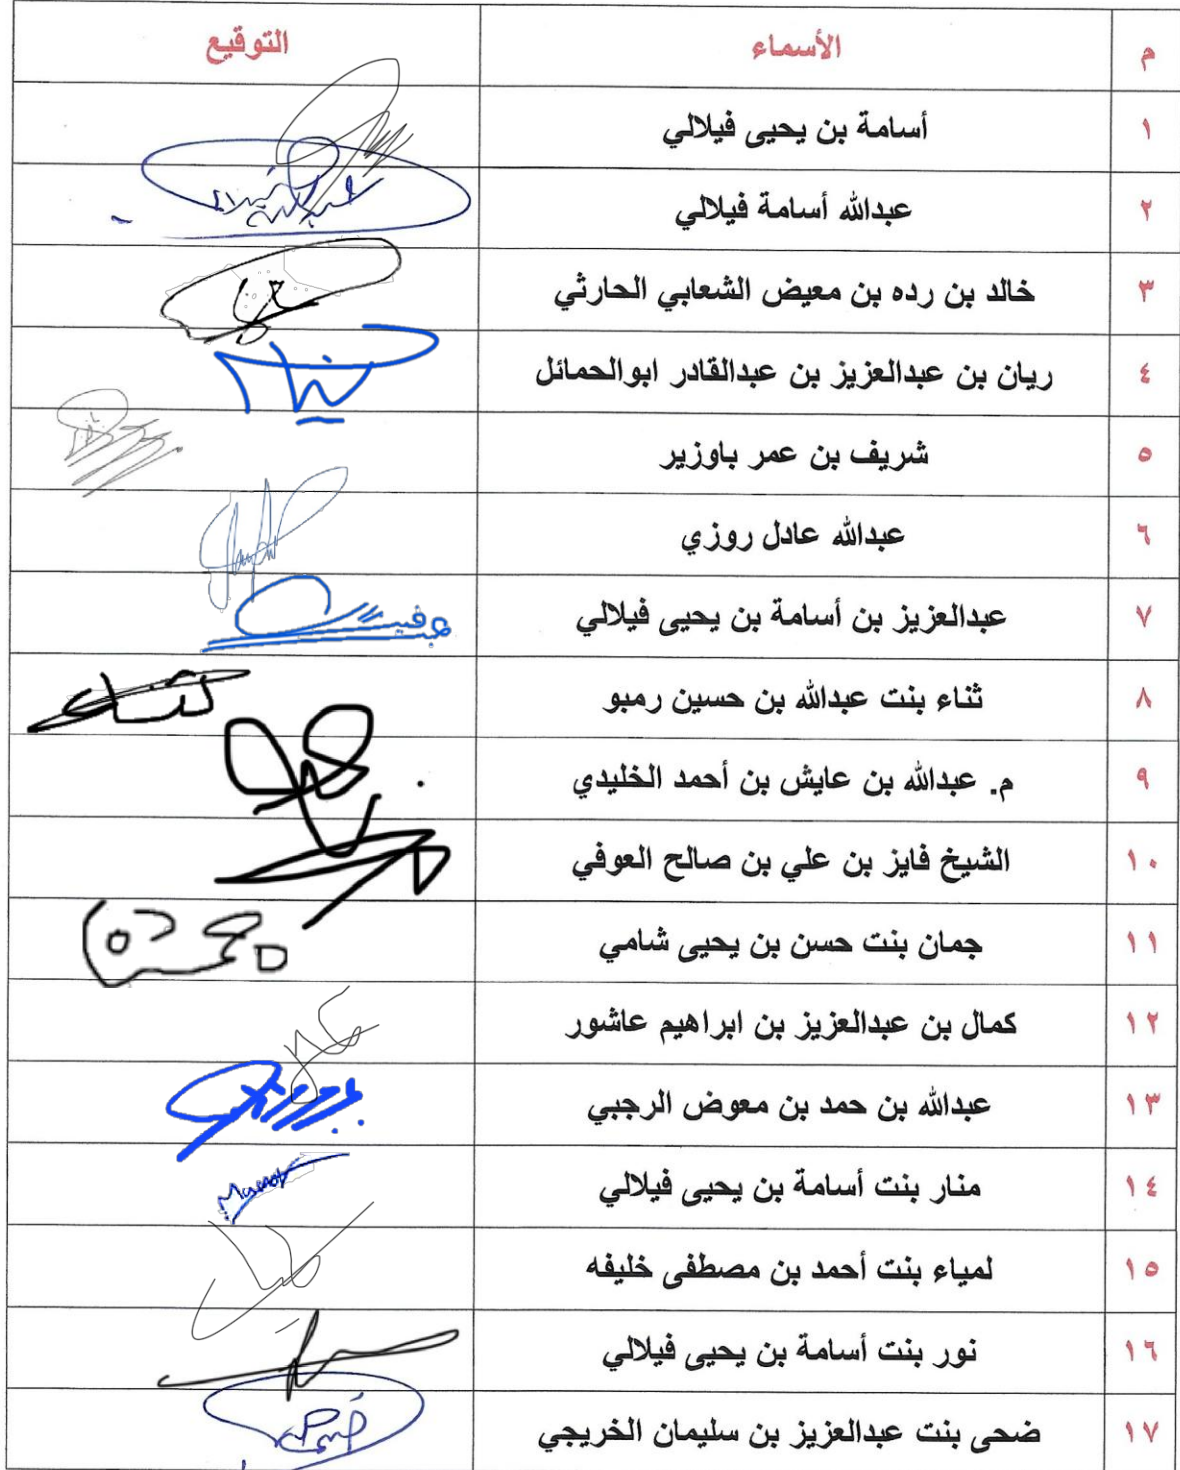 م الأسماء التوقيع
١ أسامة بن يحيى فيلالي
٢ عبدالله أسامة فيلالي
٣ خالد بن رده بن معيض الشعابي الحارثي
٤ ريان بن عبدالعزيز بن عبدالقادر ابوالحمائل
٥ شريف بن عمر باوزير
٦ عبدالله عادل روزي
٧ عبدالعزيز بن أسامة بن يحيى فيلالي
٨ ثناء بنت عبدالله بن حسين رمبو
٩ م. عبدالله بن عايش بن أحمد الخليدي
١٠ الشيخ فايز بن علي بن صالح العوفي
١١ جمان بنت حسن بن يحيى شامي
١٢ كمال بن عبدالعزيز بن ابراهيم عاشور
١٣ عبدالله بن حمد بن معوض الرجبي
١٤ منار بنت أسامة بن يحيى فيلالي
١٥ لمياء بنت أحمد بن مصطفى خليفه
١٦ نور بنت أسامة بن يحيى فيلالي
١٧ ضحى بنت عبدالعزيز بن سليمان الخريجي